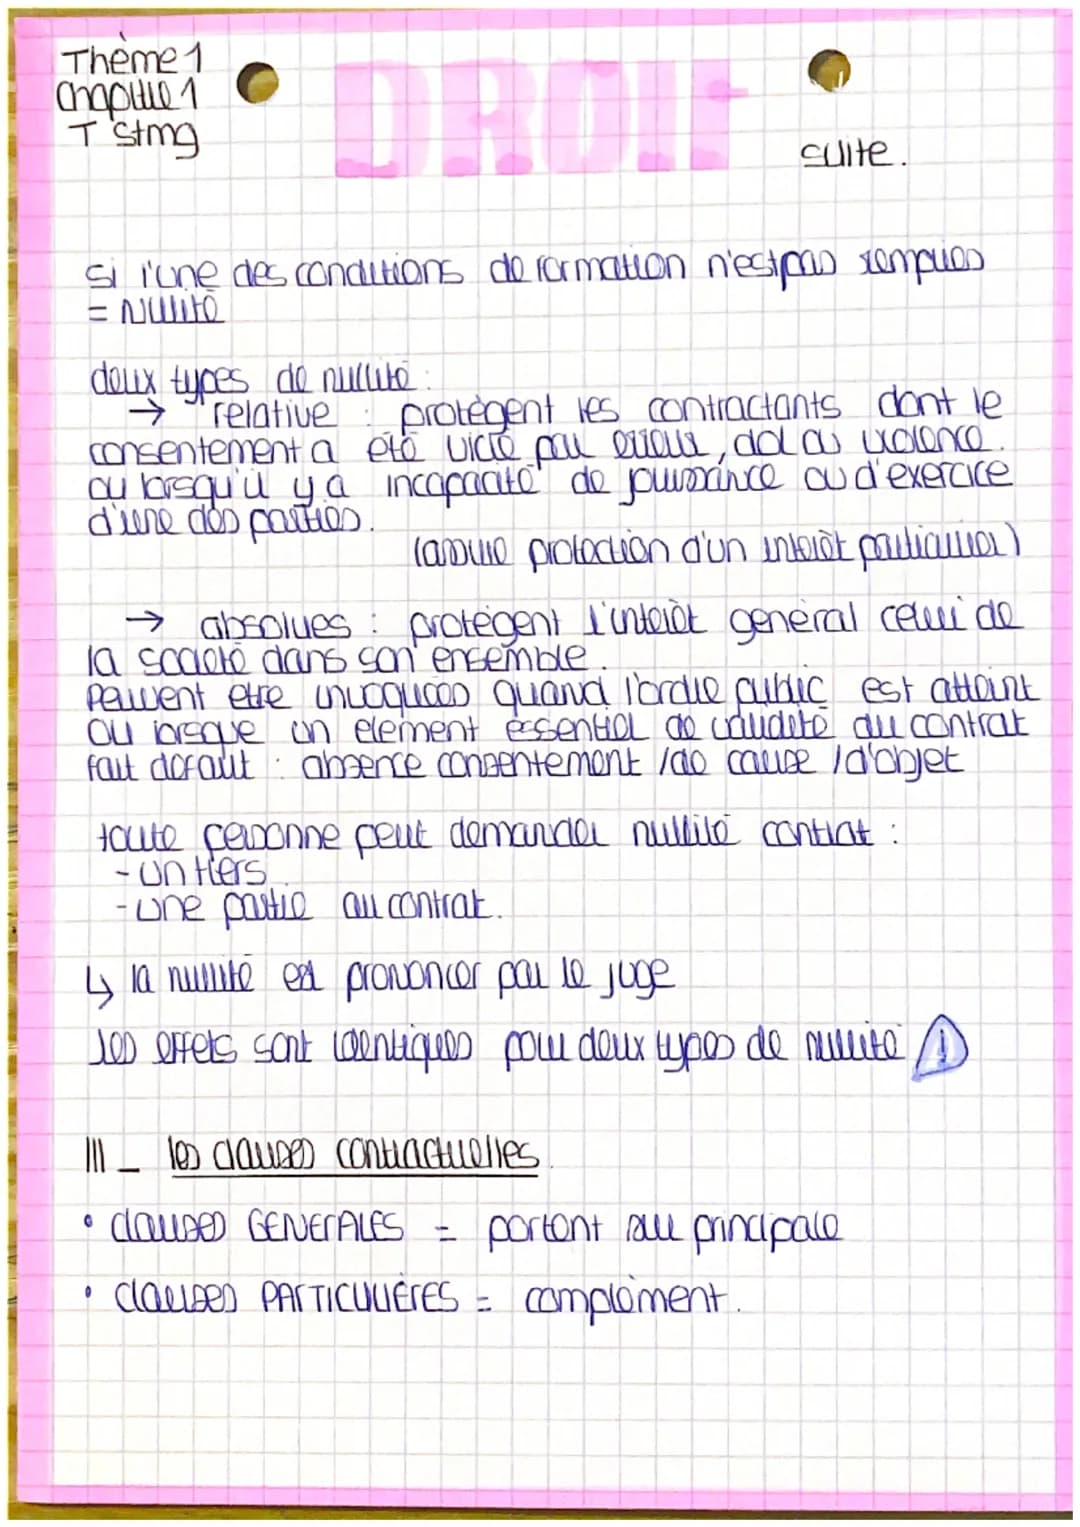 Thème 1
Chapitre 1
T Stmg
DROIT
suite.
si l'une des conditions de formation n'est pas remplies
= Nullité
deux types de nullité :
→ relative : protègent les contractants dont le
consentement a été vicié par erreur, dol ou violence.
ou lorsqu'il y a incapacité de jouissance ou d'exercice
d'une des parties.
(assure protection d'un intérêt particulier)
→ absolues : protègent l'intérêt général celui de
la société dans son ensemble.
Peuvent etre invoquées quand l'ordre public est atteint
ou lorsque un element essentiel de validité du contrat
fait defaut : absence consentement /de cause /d'objet
toute personne peut demander nullité contrat :
- un tiers
- une partie au contrat.
↳ la nullité est prononcer par le juge
les effets sont identiques pour deux types de nullité !
III _ les clauses contractuelles
• clauses GENERALES = portent sur principale
• clauses PARTICULIÈRES = complément.